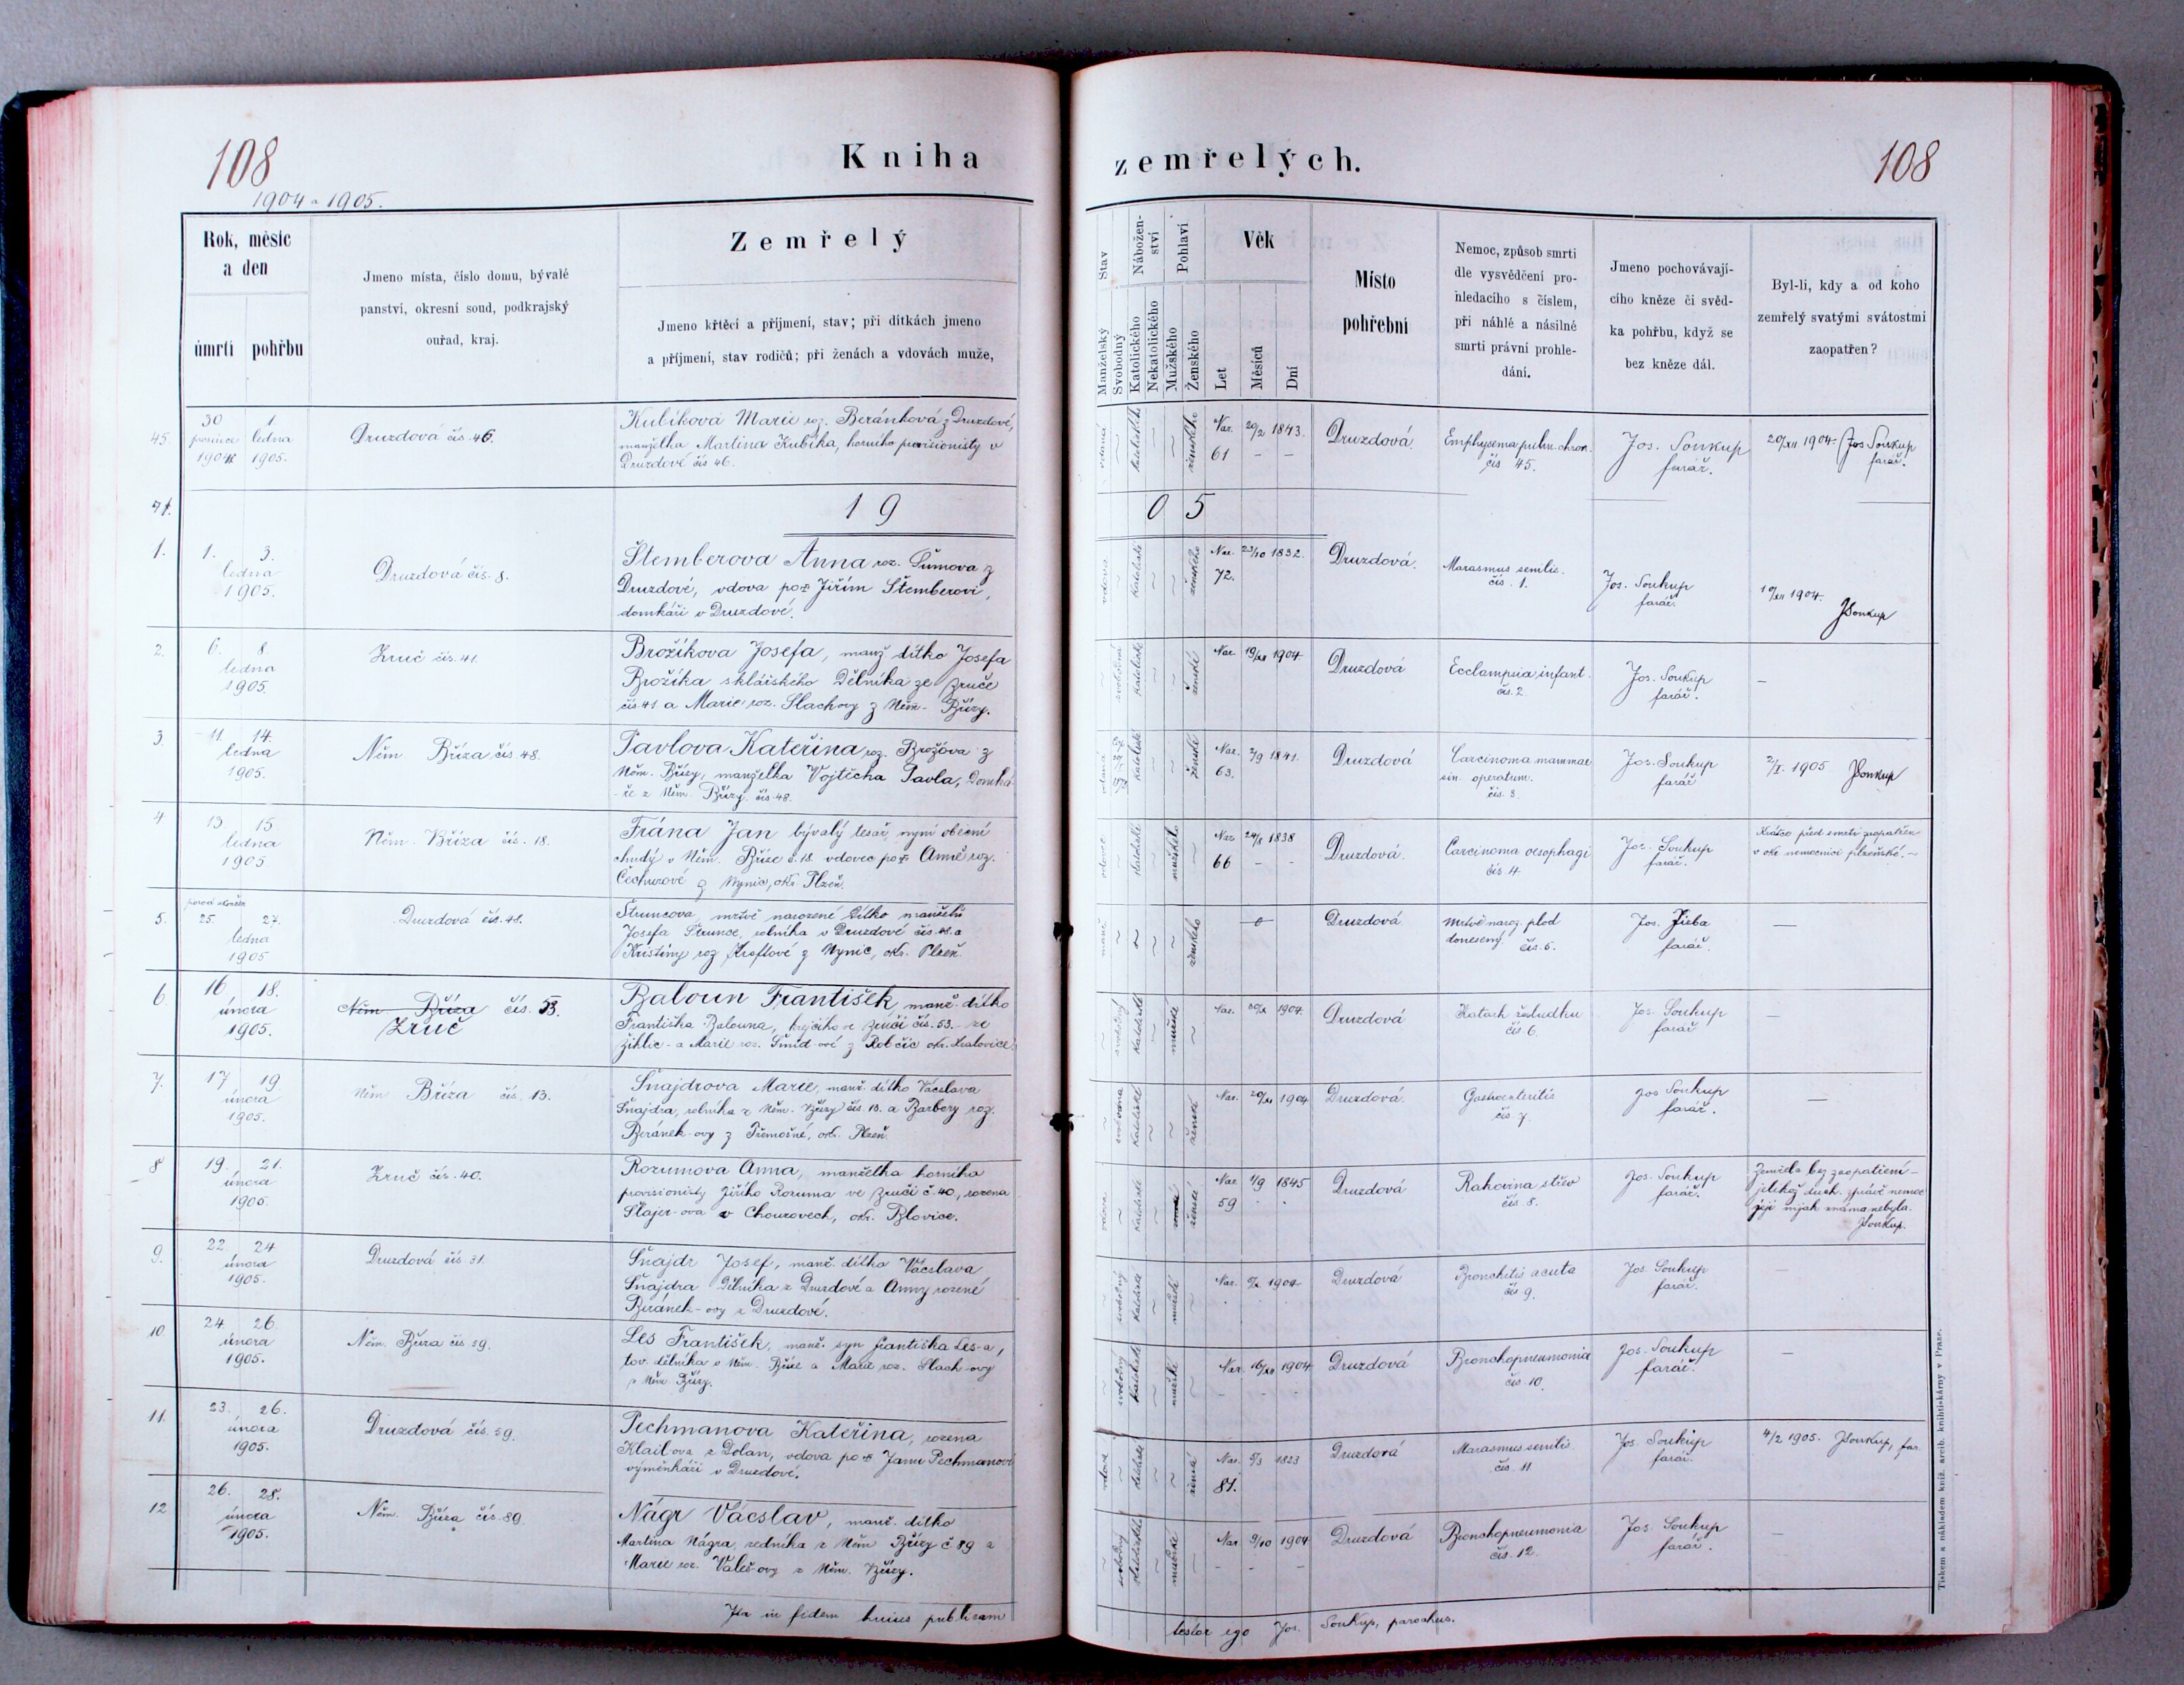 108
1904 a 1905.
Kniha
Rok, měsíc
a den
úmrtí pohřbu
Jmeno místa, číslo domu, bývalé
panství, okresní soud, podkrajský
ouřad, kraj.
Zemřelý
Jmeno křtěcí a příjmení, stav; při dítkách jmeno
a příjmení, stav rodičů; při ženách a vdovách muže,
45.
30 1
prosince ledna
1904 1905.
Druzdová čís. 46.
Kubíková Marie roz. Beránková z Druzdové,
manželka Martina Kubíka, horního provisionisty v
Druzdové čís 46.
19
1.
1. 3.
ledna
1905.
Druzdová čís. 8.
Štemberova Anna roz. Tůmova z
Druzdové, vdova po Jiřím Štemberovi,
domkáři v Druzdové.
2.
6. 8.
ledna
1905.
Zruč čís. 41.
Brožíkova Josefa, manž dítko Josefa
Brožíka sklářského dělníka ze Zruče
čís 41 a Marie roz. Slachovy z Něm. Břízy.
3.
11. 14.
ledna
1905.
Něm Bříza čís 48.
Pavlova Kateřina roz. Brožova z
Něm. Břízy, manželka Vojtěcha Pavla, domká-
ře z Něm. Břízy čís 48.
4
13 15
ledna
1905
Něm. Bříza čís. 18.
Frána Jan bývalý tesař, nyní obecní
chudý v Něm. Bříze č. 18. vdovec po Anně roz.
Čechurové z Nynic, okr. Plzeň.
5.
25. 27.
ledna
1905
Druzdová čís. 48.
Štruncova, mrtvě narozené dítko manželů
Josefa Štrunce, rolníka v Druzdové čís. 48. a
Kristiny roz Kroftové z Nynic, okr. Plzeň.
6
16 18.
února
1905.
Něm Bříza čís. 53.
Zruč
Baloun František manž. dítko
Františka Balouna, krejčího ve Zruči čís. 53. - ze
Žihlic - a Marie roz. Šmíd-ové z Robčic okr. Kralovice.
7.
17 19
února
1905.
Něm Bříza čís. 13.
Šnajdrova Marie, manž. dítko Václava
Šnajdra, rolníka z Něm. Břízy čís. 13. a Barbory roz.
Beránek-ovy z Třemošné, okr. Plzeň.
8
19. 21.
února
1905.
Zruč čís. 40.
Rozumova Anna, manželka horníka
provisionisty Jiřího Rozuma ve Zruči č. 40, rozena
Šlajer-ova v Chouzovech, okr. Blovice.
9.
22 24
února
1905.
Druzdová čís 31.
Šnajdr Josef, manž. dítko Vácslava
Šnajdra dělníka z Druzdové a Anny rozené
Beránek-ovy z Druzdové.
10
24 26.
února
1905.
Něm. Bříza čís 59.
Les František, manž. syn Františka Les-a,
tov. dělníka v Něm. Bříze a Marie roz. Slach-ovy
z Něm. Břízy.
11.
23. 26.
února
1905.
Druzdová čís. 59.
Pechmanova Kateřina, rozena
Klailova z Dolan, vdova po Janu Pechmanovi
výměnkáři v Druzdové.
12
26. 28.
února
1905.
Něm. Bříza čís. 89.
Nágr Vácslav, manž. dítko
Martina Nágra,ředníka z Něm Břízy č 89 a
Marie roz. Valeš-ovy z Něm. Břízy.
Ita in fidem huius publicam
zemřelých.
108
Stav
Nábožen-
ství
Pohlaví
Věk
Manželský
Svobodný
Katolického
Nekatolického
Mužského
Ženského
Let
Měsíců
Dní
Místo
pohřební
Nemoc, způsob smrti
dle vysvědčení pro-
hledacího s číslem,
při náhlé a násilné
smrti právní prohle-
dání.
Jmeno pochovávají-
cího kněze či svěd-
ka pohřbu, když se
bez kněze dál.
Byl-li, kdy a od koho
zemřelý svatými svátostmi
zaopatřen?
vdaná katolického ženského
Nar. 20/2 1843.
61 - -
Druzdová.
Emphysema pulm. chron.
čís 45.
Jos. Soukup
farář.
20/XII 1904. Jos Soukup
farář.
05
vdova katolické ženského
Nar. 23/10 1832.
72.
Druzdová.
Marasmus senilis.
čís. 1.
Jos. Soukup
farář.
10/XII 1904.
JSoukup
katolické ženské
Nar. 19/XII 1904.
Druzdová
Ecclampsia infant.
čís. 2.
Jos. Soukup
farář.
vdaná katolické ženské
Nar. 2/9 1841.
63.
Druzdová
Carcinoma mammae
sin. operatum.
čís. 3
Jos. Soukup
farář
2/I. 1905 JSoukup
vdovec katolické mužského
Nar 24/8 1838
66 - -
Druzdová.
Carcinoma oesophagi
čís. 4.
Jos. Soukup
farář.
Krátce před smrtí zaopatřen
v okr nemocnici plzeňské. -
manž ženského
Druzdová
Mrtvě naroz. plod
donesený. čís. 5.
Jos. Jirba
farář.
svobodný katolické mužské
Nar. 1904.
Druzdová
Katarh žaludku
čís. 6.
Jos. Soukup
farář
svobodna katolické ženské
Nar. 20/XI 1904
Druzdová.
Gastroenteritis
čís. 7.
Jos Soukup
farář.
katolické ženské
Nar 1/9 1845
59
Druzdová
Rakovina střev
čís. 8.
Jos. Soukup
farář.
Zemřela bez zaopatření -
jelikož duch. správě nemoc
její nijak známa nebyla.
JSoukup.
svobodný katolické mužské
Nar. 1904
Druzdová
Bronchitis acuta
čís 9.
Jos. Soukup
farář.
svobodný katolické mužské
Nar. 16/XII 1904
Druzdová
Bronchopneumonia
čís. 10.
Jos. Soukup
farář.
vdova katolické ženské
Nar. 5/3 1823
81.
Druzdová
Marasmus senilis
čís. 11
Jos. Soukup
farář.
4/2 1905. JSoukup, far.
svobodný katolického mužské
Nar. 9/10 1904
Druzdová
Bronchopneumonia
čís. 12.
Jos. Soukup
farář.
testor ego Jos. Soukup, parochus.
Tiskem a nákladem kníž. arcib. knihtiskárny v Praze.